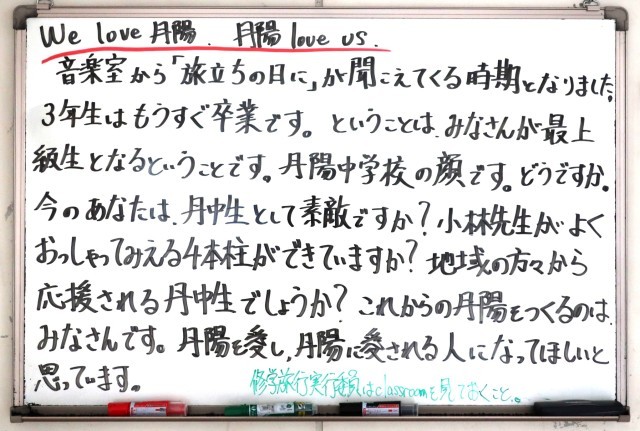 We love 丹陽. 丹陽 love us.
音楽室から「旅立ちの日に」が聞こえてくる時期となりました。
3年生はもうすぐ卒業です。ということは、みなさんが最上
級生となるということです。丹陽中学校の顔です。どうですか。
今のあなたは、丹中生として素敵ですか?小林先生がよく
おっしゃってみえる4本柱ができていますか?地域の方々から
応援される丹中生でしょうか?これからの丹陽をつくるのは
みなさんです。丹陽を愛し、丹陽に愛される人になってほしいと
思っています。
修学旅行実行委員はclassroomを見ておくこと。